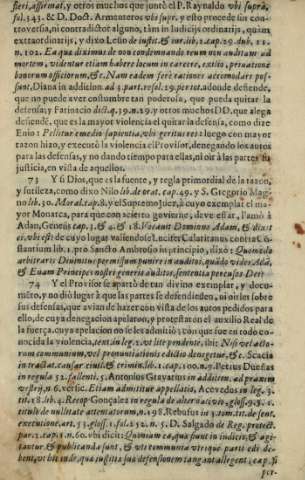 fieri, assirmat, y otros muchos que juntò el P. Raynaldo vbi suprà,
fol. 343. & D. Doct. Armenteros vbi supr. y esto procede sin con-
troversia, ni contradictor alguno, tàm in Iudicijs ordinarijs, quàm
extraordinarijs, y dixo Leño de iusst. & iur. lib. 2. cap. 29. dub.
n. 102. Ea qua diximus de non condemnando reum non auditum ad
mortem, videntur etiam habere locum in carcere, exilio, privatione
bonorum, officiorum, &c. Nam eadem ferè rationes accomodari pos-
sunt, Diana in addition. ad 3. part. resol. 29. per tot. adonde desiende,
que no puede aver costumbre tan poderosa, que pueda quitar la
defensa; y Farinacio dict. q. 39. n. 29. y otros muchos DD. que alega
desiende, que es la mayor violencia el quitar la defensa, como dire
Enio: Pellitur è medio sapientia, vbi geritur res: luego con mayor
razon hizo, y executò la violencia el Provisor, denegando los autos
para las defensas, y no dando tiempo para ellas, ni oìr à las partes su
justicia, en vista de aquellos.
73 Y si Dios, que es la fuente, y regla primordial de la razon,
y sutileza, como dixo Nilo lib. de orat. cap. 49. y S. Gregorio Mag-
no lib. 30. Moral. cap. 8. y el Supremo Juez, à cuyo exemplar el ma-
yor Monarca, para que con acierto govierne, deve estàr, llamò à
Adan, Genesis cap. 3. & 4. & 18. Vocavit Dominus Adam, & dixit
ei, vbi est: de cuyo lugar valiendose Lucifer Calaritanus contra Cõs-
tantium lib. 1. pro Sancto Ambrosio in principio, dixo: Quomodo
arbitraris Divinitus permissum punire inauditos, quãdo vides Adã,
& Euam Principes nostri generis auditos, sententia percusos Dei?
74 Y el Provisor se apartò de tan divino exemplar, y docu-
mẽto, y no diò lugar à que las partes se defendiessen, ni oìrles sobre
sus defensas, que avian de hazer con vista de los autos pedidos para
ello, de cuya denegacion apelaron, y protestaron el auxilio Real de
la fuerça, cuya apelacion no se les admitiò; con que fue en todo co-
nocida la violencia, tex. in leg. 2. vt lite pendente, ibi: Nisi vel acto-
rum communium, vel pronuntiationis edictio denegetur, &c. Scacia
in tractat. causar. civil. & crimin. lib. 1. cap. 100. n. 9. Petrus Dueñas
in regula 32. fallenti. 5. Antonius Gravatius in addition. ad praxim
vestrij, n. 6. versic. Etiam admittitur appellatio, Acevedus in leg. 3.
tit. 18. lib. 4. Recop. Gonçalez in regula de alternativis, gloss. 9. §. 1.
titul. de nullitate attentatorum, n. 198. Rebufus in 3. tom. tit. de sent.
executione, art. 53. gloss. 1. fol. 152. n. 5. D. Salgado de Reg. protect.
par. 2. cap. 1. n. 60. vbi dicit: Quoniam ea, quæ sunt in iudicio, & agi-
tantur & publicanda sunt, & vti communia vtrique parti edi de-
bent, vt bis inde, quæ iustitia suæ defensionem tangant allegent, cap. si
per-